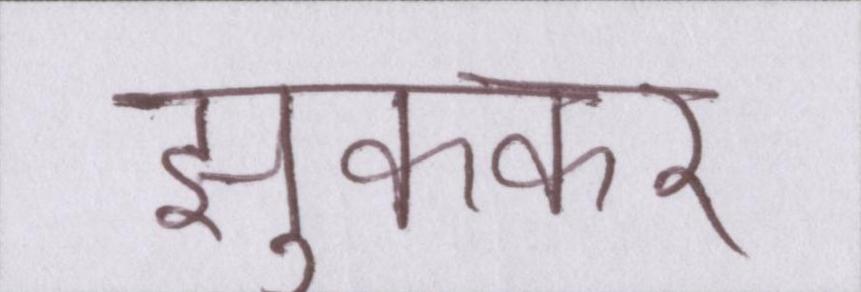 झुककर